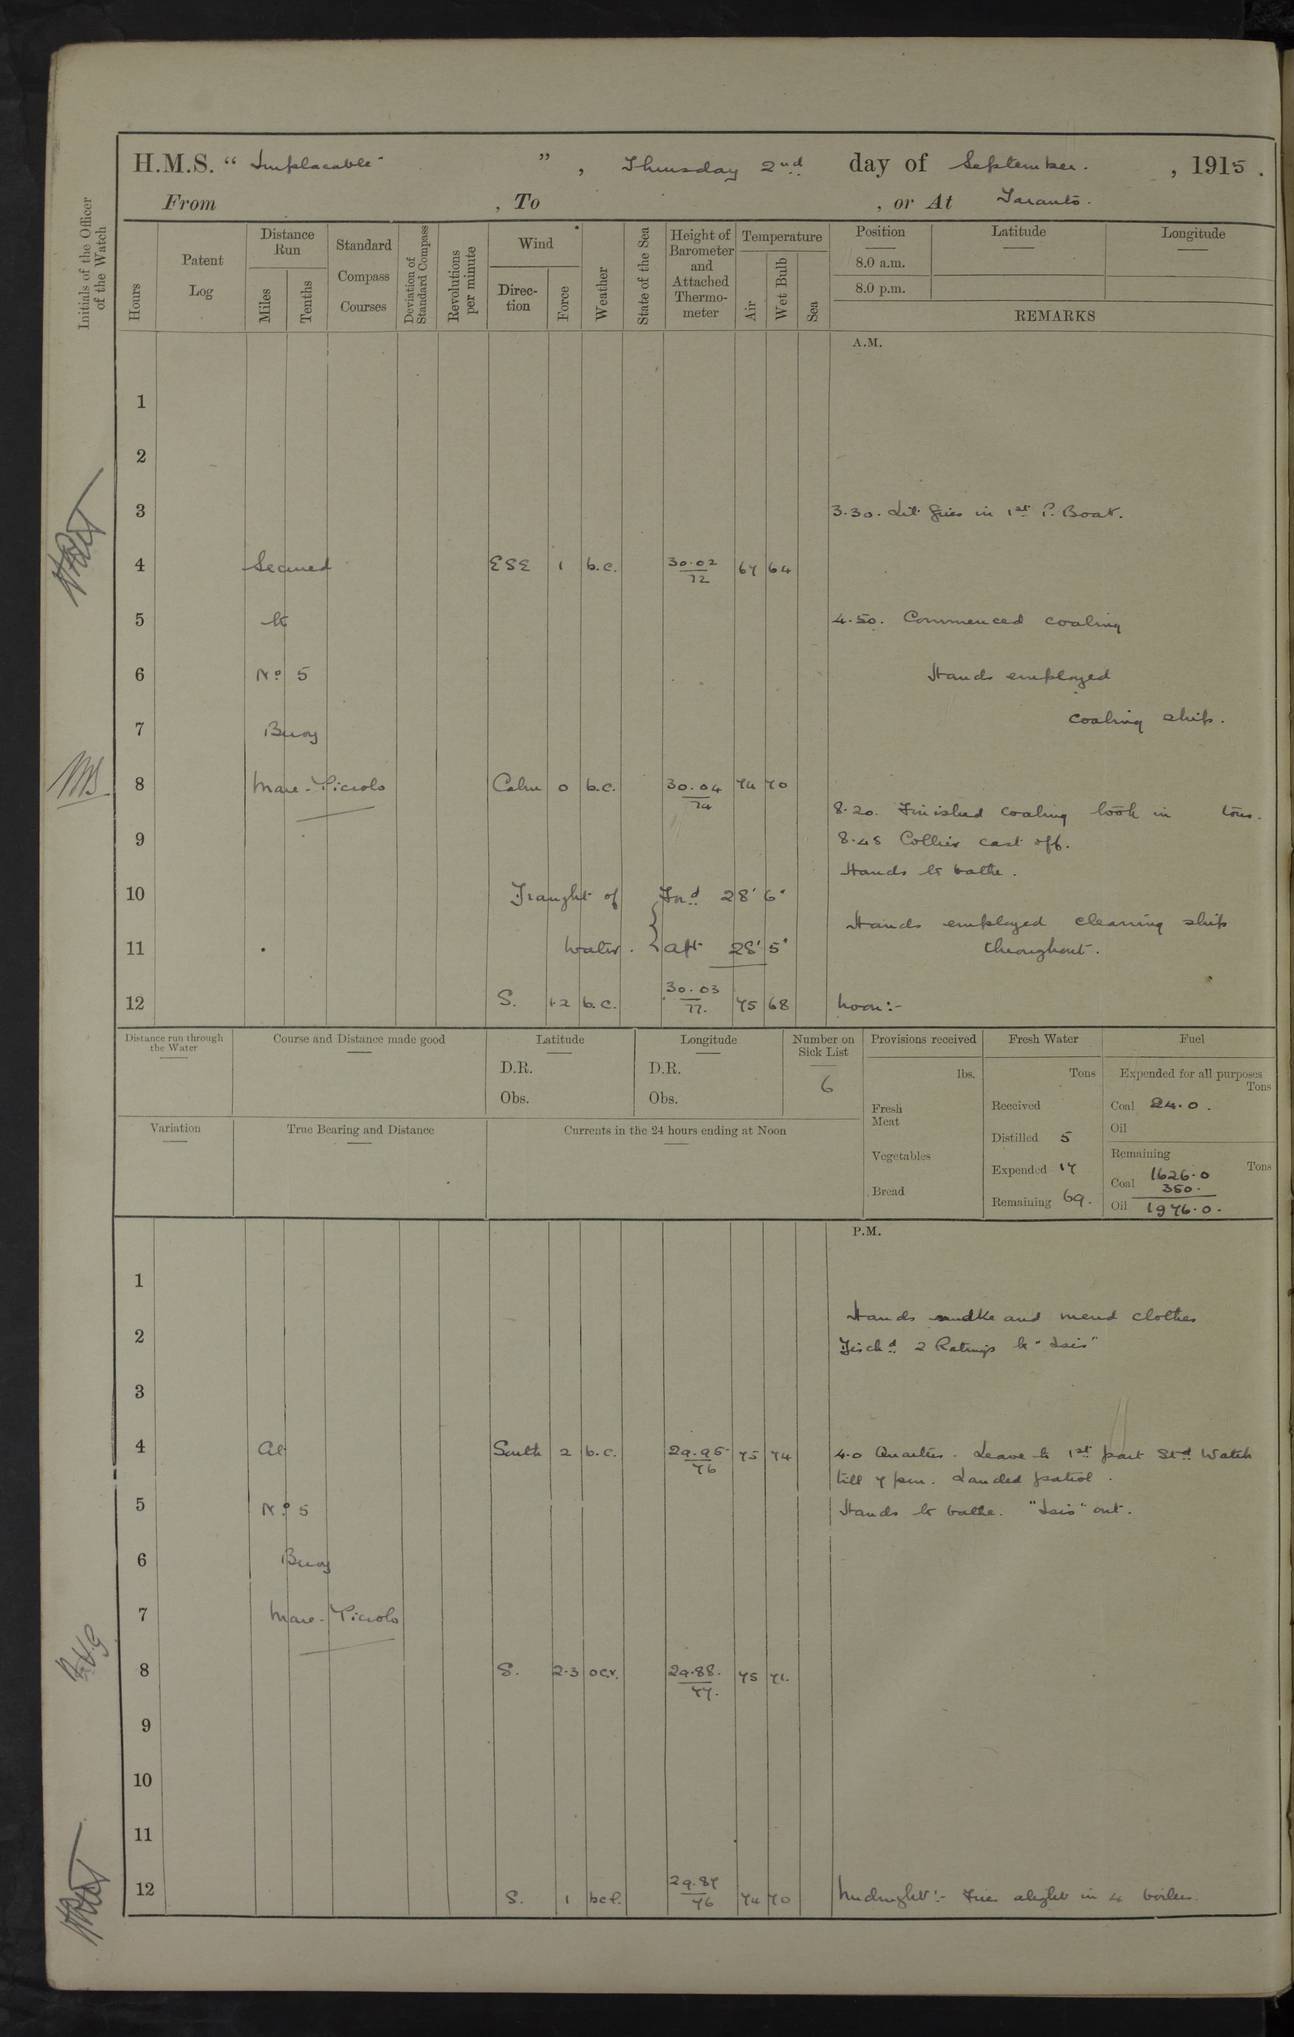 H.M.S. “ Implacable ” , Thursday 2nd day of September. , 1915.
From , To , or At Taranto.
Initials of the Officer of the Watch
Hours
Patent Log
Distance Run
Miles
Tenths
Standard Compass Courses
Deviation of Standard Compass
Revolutions per minute
Wind
Direc-tion
Force
Weather
State of the Sea
Height of Barometer and Attached Thermo-meter
Temperature
Air
Wet Bulb
Sea
Position
8.0 a.m.
8.0 p.m.
Latitude
Longitude
REMARKS
A.M.
1
2
3 3.30. Lit fires in 1st P. Boat.
4 Secured ESE 1 b.c. 30.02 72 67 64
5 to 4.50. Commenced coaling
6 No 5 Hands employed
coaling ship.
7 Buoy
8 Mare-Piccolo Calm 0 b.c. 30.04 74 74 70
8.20. Finished coaling took in tons.
9 8.45 Collier cast off.
Hands to bathe.
10 Draught of Ford 28' 6"
Hands employed cleaning ship
11 Water. aft 28' 5" throughout.
12 S. 1.2 b.c. 30.03 77. 75 68 Noon:-
Distance run through the Water
Course and Distance made good
Latitude
D.R.
Obs.
Longitude
D.R.
Obs.
Number on Sick List
6
Provisions received
lbs.
Fresh Meat
Vegetables
Bread
Fresh Water
Tons
Received
Distilled 5
Expended 17
Remaining 69.
Fuel
Expended for all purposes
Tons
Coal 24.0.
Oil
Remaining
Tons
Coal 1626.0
350.
Oil 1976.0.
Variation
True Bearing and Distance
Currents in the 24 hours ending at Noon
P.M.
1
Hands make and mend clothes
2 Dischd 2 Ratings to "Isis"
3
4 At South 2 b.c. 29.95 76 75 74 4.0 Quarters. Leave to 1st part Std Watch
till 7 pm. Landed patrol.
5 No 5 Hands to bathe. "Isis" out.
6 Buoy
7 Mare-Piccolo
8 S. 2.3 ocr. 29.88. 77. 75 71.
9
10
11
12 S. 1 bcl. 29.87 76 74 70 Midnight:- Fires alight in 4 boilers.